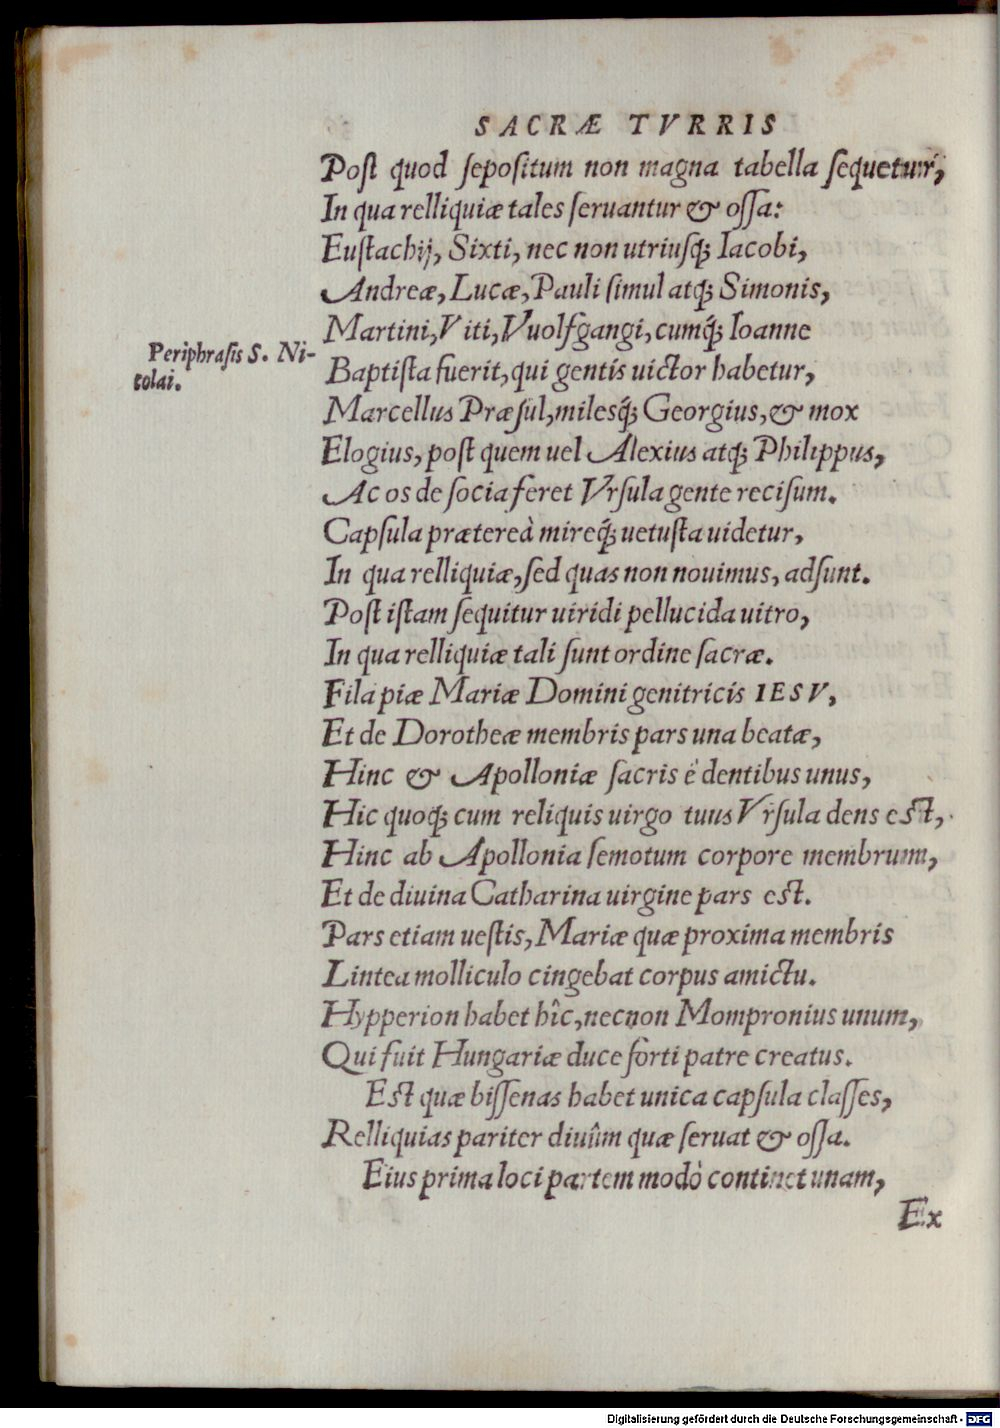 SACRÆ TVRRIS
Poſt quod ſepoſitum non magna tabella ſequetur,
In qua relliquiæ tales ſeruantur & oſſa:
Euſtachij, Sixti, nec non utriuſq́; Iacobi,
Andreæ, Lucæ, Pauli ſimul atq; Simonis,
Martini, Viti, Vuolfgangi, cumq́; Ioanne
Periphraſis S. Ni-
colai.
Baptiſta fuerit, qui gentis uictor habetur,
Marcellus Præſul, milesq́; Georgius, & mox
Elogius, poſt quem uel Alexius atq; Philippus,
Ac os de ſocia feret Vrſula gente reciſum.
Capſula prætereà mireq́; uetuſta uidetur,
In qua relliquiæ, ſed quas non nouimus, adſunt.
Poſt iſtam ſequitur uiridi pellucida uitro,
In qua relliquiæ tali ſunt ordine ſacræ.
Fila piæ Mariæ Domini genitricis IESV,
Et de Dorotheæ membris pars una beatæ,
Hinc & Apolloniæ ſacris è dentibus unus,
Hic quoq; cum reliquis uirgo tuus Vrſula dens eſt,
Hinc ab Apollonia ſemotum corpore membrum,
Et de diuina Catharina uirgine pars eſt.
Pars etiam ueſtis, Mariæ quæ proxima membris
Lintea molliculo cingebat corpus amictu.
Hypperion habet hîc, necnon Mompronius unum,
Qui fuit Hungariæ duce forti patre creatus.
Eſt quæ biſſenas habet unica capſula claſſes,
Relliquias pariter diuûm quæ ſeruat & oſſa.
Eius prima loci partem modò continet unam,
Ex
Digitalisierung gefördert durch die Deutsche Forschungsgemeinschaft - DFG